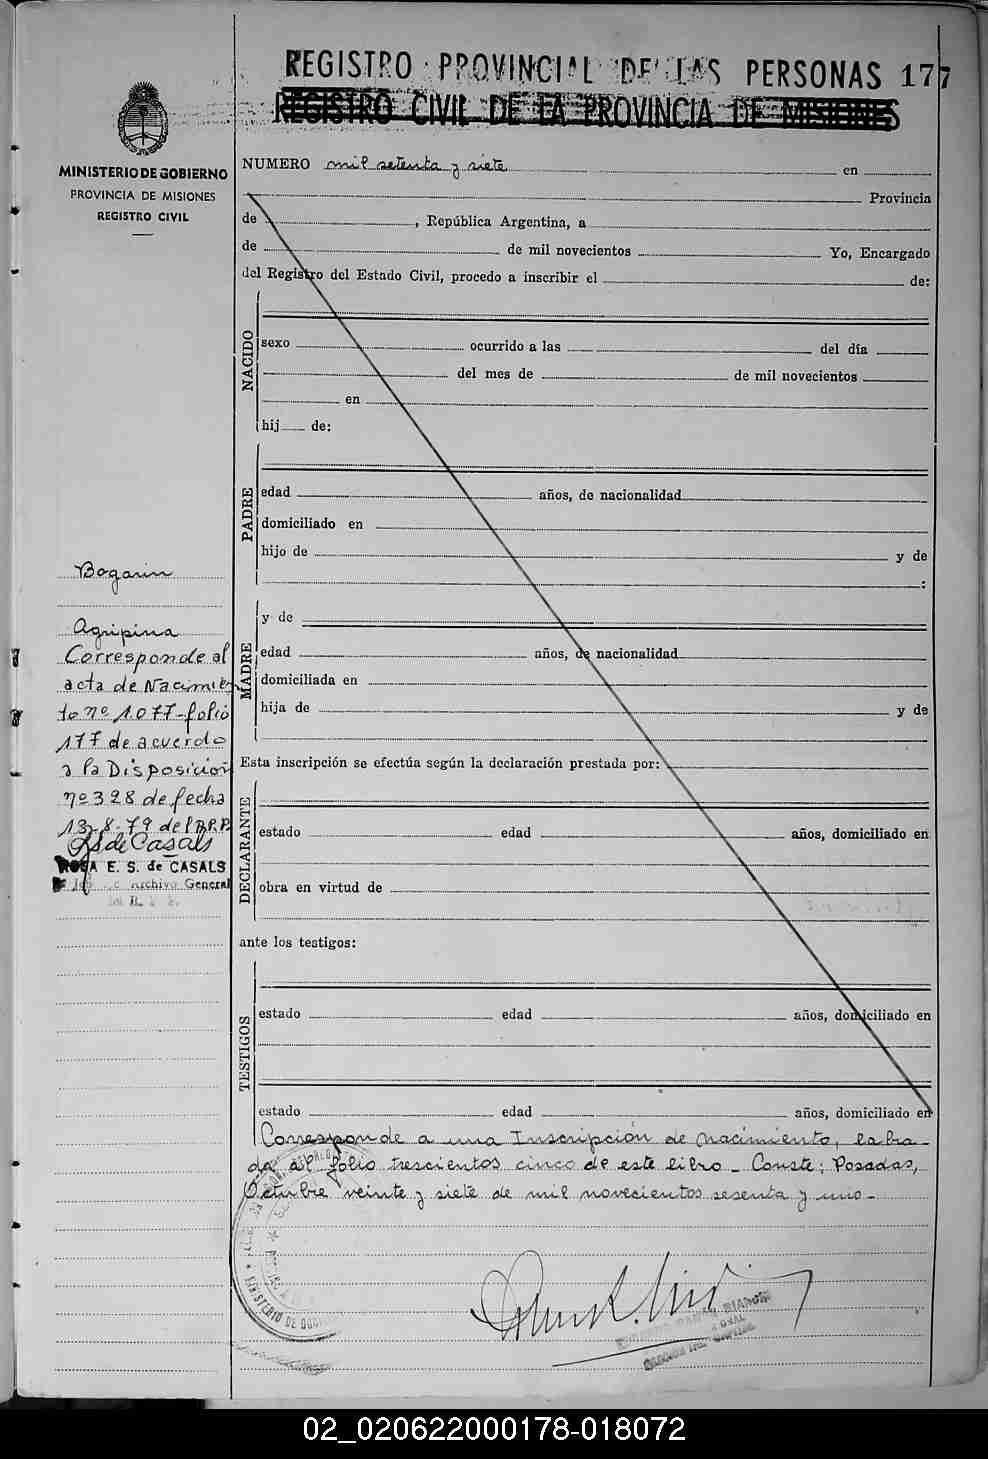 REGISTRO PROVINCIAL DE LAS PERSONAS 177
REGISTRO CIVIL DE LA PROVINCIA DE MISIONES
MINISTERIO DE GOBIERNO
PROVINCIA DE MISIONES
REGISTRO CIVIL
NUMERO mil setenta y siete en
Provincia
de , República Argentina, a
de de mil novecientos Yo, Encargado
del Registro del Estado Civil, procedo a inscribir el de:
NACIDO
sexo ocurrido a las del día
del mes de de mil novecientos
en
hij de:
PADRE
edad años, de nacionalidad
domiciliado en
hijo de y de
:
MADRE
y de
edad años, de nacionalidad
domiciliada en
hija de y de
Esta inscripción se efectúa según la declaración prestada por:
DECLARANTE
estado edad años, domiciliado en
obra en virtud de
ante los testigos:
TESTIGOS
estado edad años, domiciliado en
estado edad años, domiciliado en
Corresponde a una Inscripción de Nacimiento, labra-
da al folio trescientos cinco de este libro - Conste; Posadas,
Octubre veinte y siete de mil novecientos sesenta y uno -
Bogarin
Agripina
Corresponde al
acta de Nacimien
to nº 1.077 - folio
177 de acuerdo
a la Disposición
nº 328 de fecha
13-8-79 del R.P.P.
RS de Casals
ROSA E. S. de CASALS
Archivo General
MINISTERIO DE
02_020622000178-018072